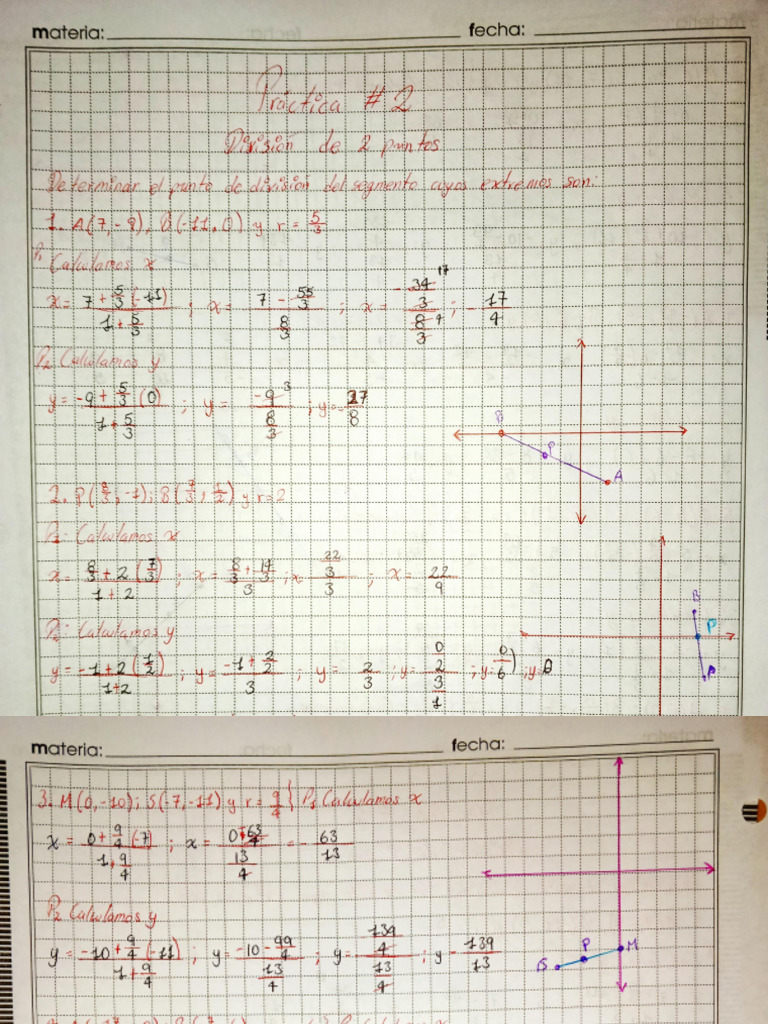 materia: fecha:
Práctica # 2
División de 2 puntos
Determinar el punto de división del segmento cuyos extremos son:
1. A(7,-9), B(-11,0) y r = 5/3
P₁ Calculamos x
x = (7 + 5/3 (-11))/(1 + 5/3) ; x = (7 - 55/3)/(8/3) ; x = (-34/3)/(8/3) 17 4 ; - 17/4
P₂ Calculamos y
y = (-9 + 5/3 (0))/(1 + 5/3) ; y = (-9)/(8/3) 3 ; y = -27/8
B
P
A
2. P(8/3, -1); B(7/3, 1/2) y r=2
P₁: Calculamos x
x = (8/3 + 2 (7/3))/(1+2) ; x = (8/3 + 14/3)/3 ; x = (22/3)/3 ; x = 22/9
B
P₂: Calculamos y
P
y = (-1+2 (1/2))/(1+2) ; y = (-1 + 2/2)/3 ; y = 2/3 ; y = (0/2)/(3/1) ; y = 0/6 ) ; y = 0
materia: fecha:
3. M(0,-10); S(-7,-11) y r = 9/4 { P₁ Calculamos x
x = (0 + 9/4 (-7))/(1 + 9/4) ; x = (0 - 63/4)/(13/4) = - 63/13
P₂ Calculamos y
y = (-10 + 9/4 (-11))/(1 + 9/4) ; y = (-10 - 99/4)/(13/4) ; y = (-139/4)/(13/4) ; y - 139/13
S P M